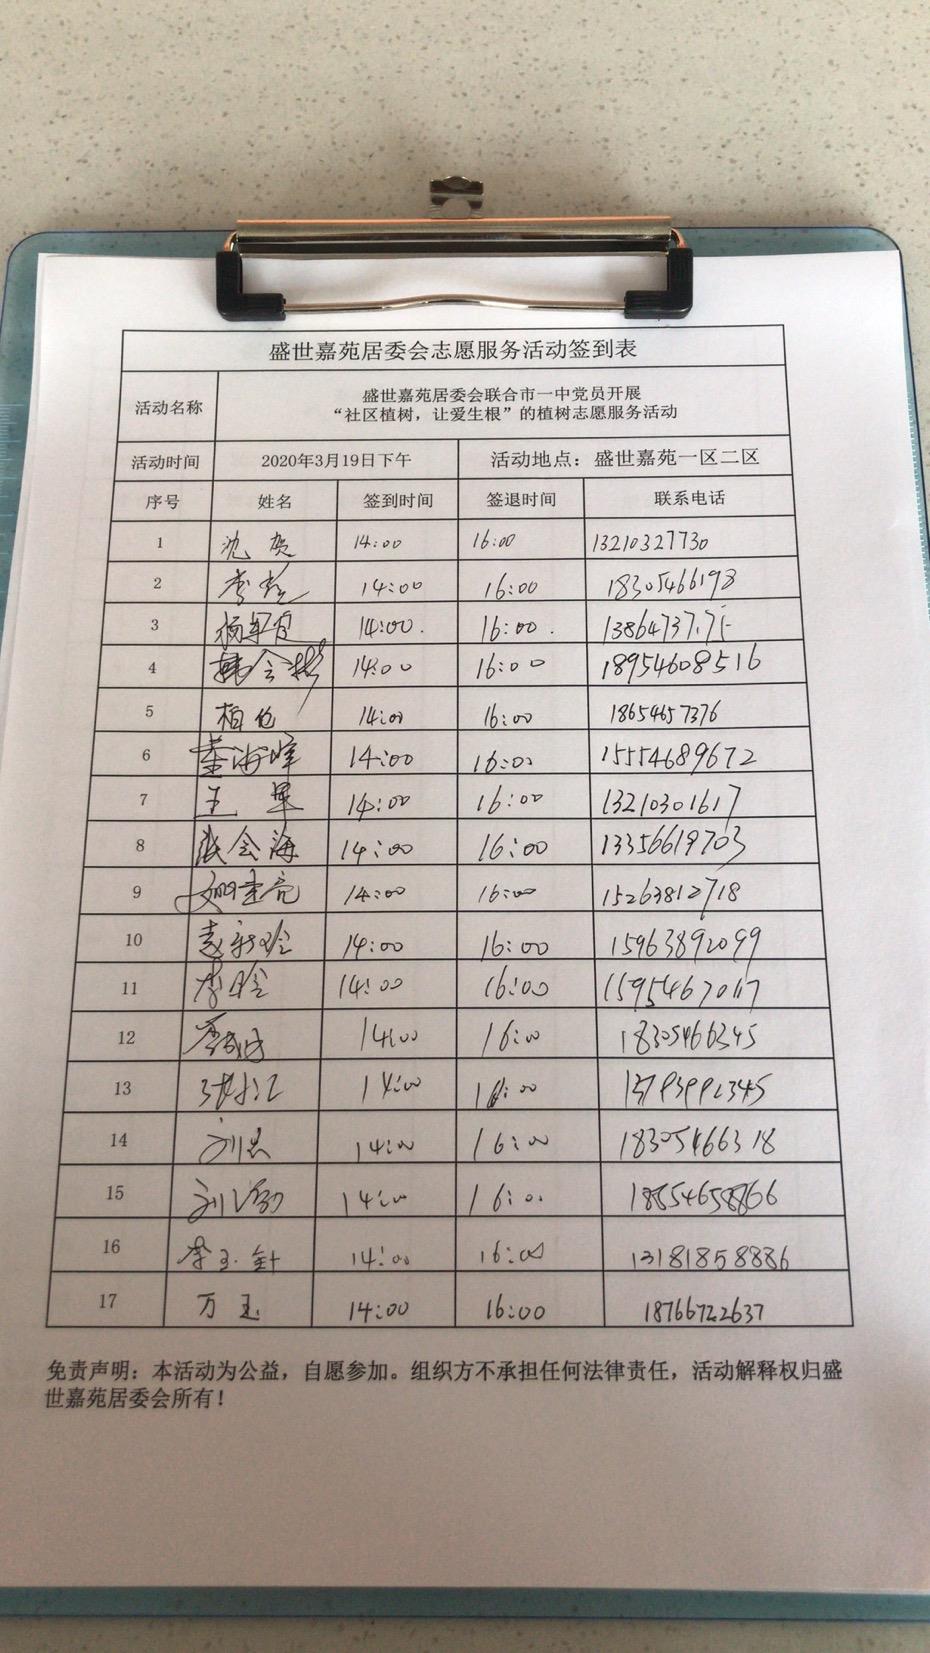 盛世嘉苑居委会志愿服务活动签到表
活动名称
盛世嘉苑居委会联合市一中党员开展
“社区植树，让爱生根”的植树志愿服务活动
活动时间 2020年3月19日下午 活动地点：盛世嘉苑一区二区
序号 姓名 签到时间 签退时间 联系电话
1 沈贺 14:00 16:00 13210327730
2 14:00 16:00 18305466198
3 14:00. 16:00.
4 14:00 16:00 18954608516
5 14:00 16:00 18654657376
6 董海峰 14:00 16:00 15554689672
7 王军 14:00 16:00 13210301617
8 张会海 14:00 16:00 13356619703
9 14:00 16:00 15263812718
10 14:00 16:00 15963892099
11 李晗 14:00 16:00
12 14:00 16:00 18305466345
13 14:00 16:00
14 14:00 16:00 18305466318
15 14:00 16:00
16 李玉 14:00 16:00 13181858886
17 万玉 14:00 16:00 18766722637
免责声明：本活动为公益，自愿参加。组织方不承担任何法律责任，活动解释权归盛
世嘉苑居委会所有！